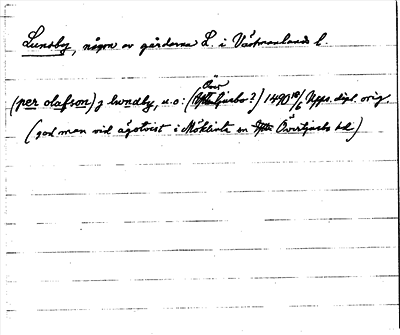 Lunsby, någon av gårdarna L. i Västmanlands l.
Över
(per olafson) j lwndby, u.o: (Ytterljusbo?) 1490 18/6 Upps. dipl. orig.
(god man vid ägotvist i Möklinta en Övertjärbo hd)